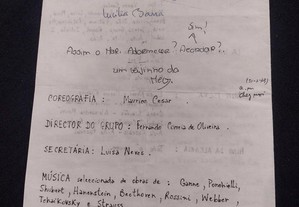 Sim!
Assim o Mar. Adormecer? Acordar?
um beijinho da
COREOGRAFIA : Marrion Cesar
DIRECTOR DO GRUPO : Fernando Correia de Oliveira
SECRETÁRIA : Luiza Neves
MÚSICA seleccionada de obras de : Ganne, Ponchielli,
Shubert, Hanenstein, Beethoven, Rossini, Webber,
Tchaikovsky e Strauss